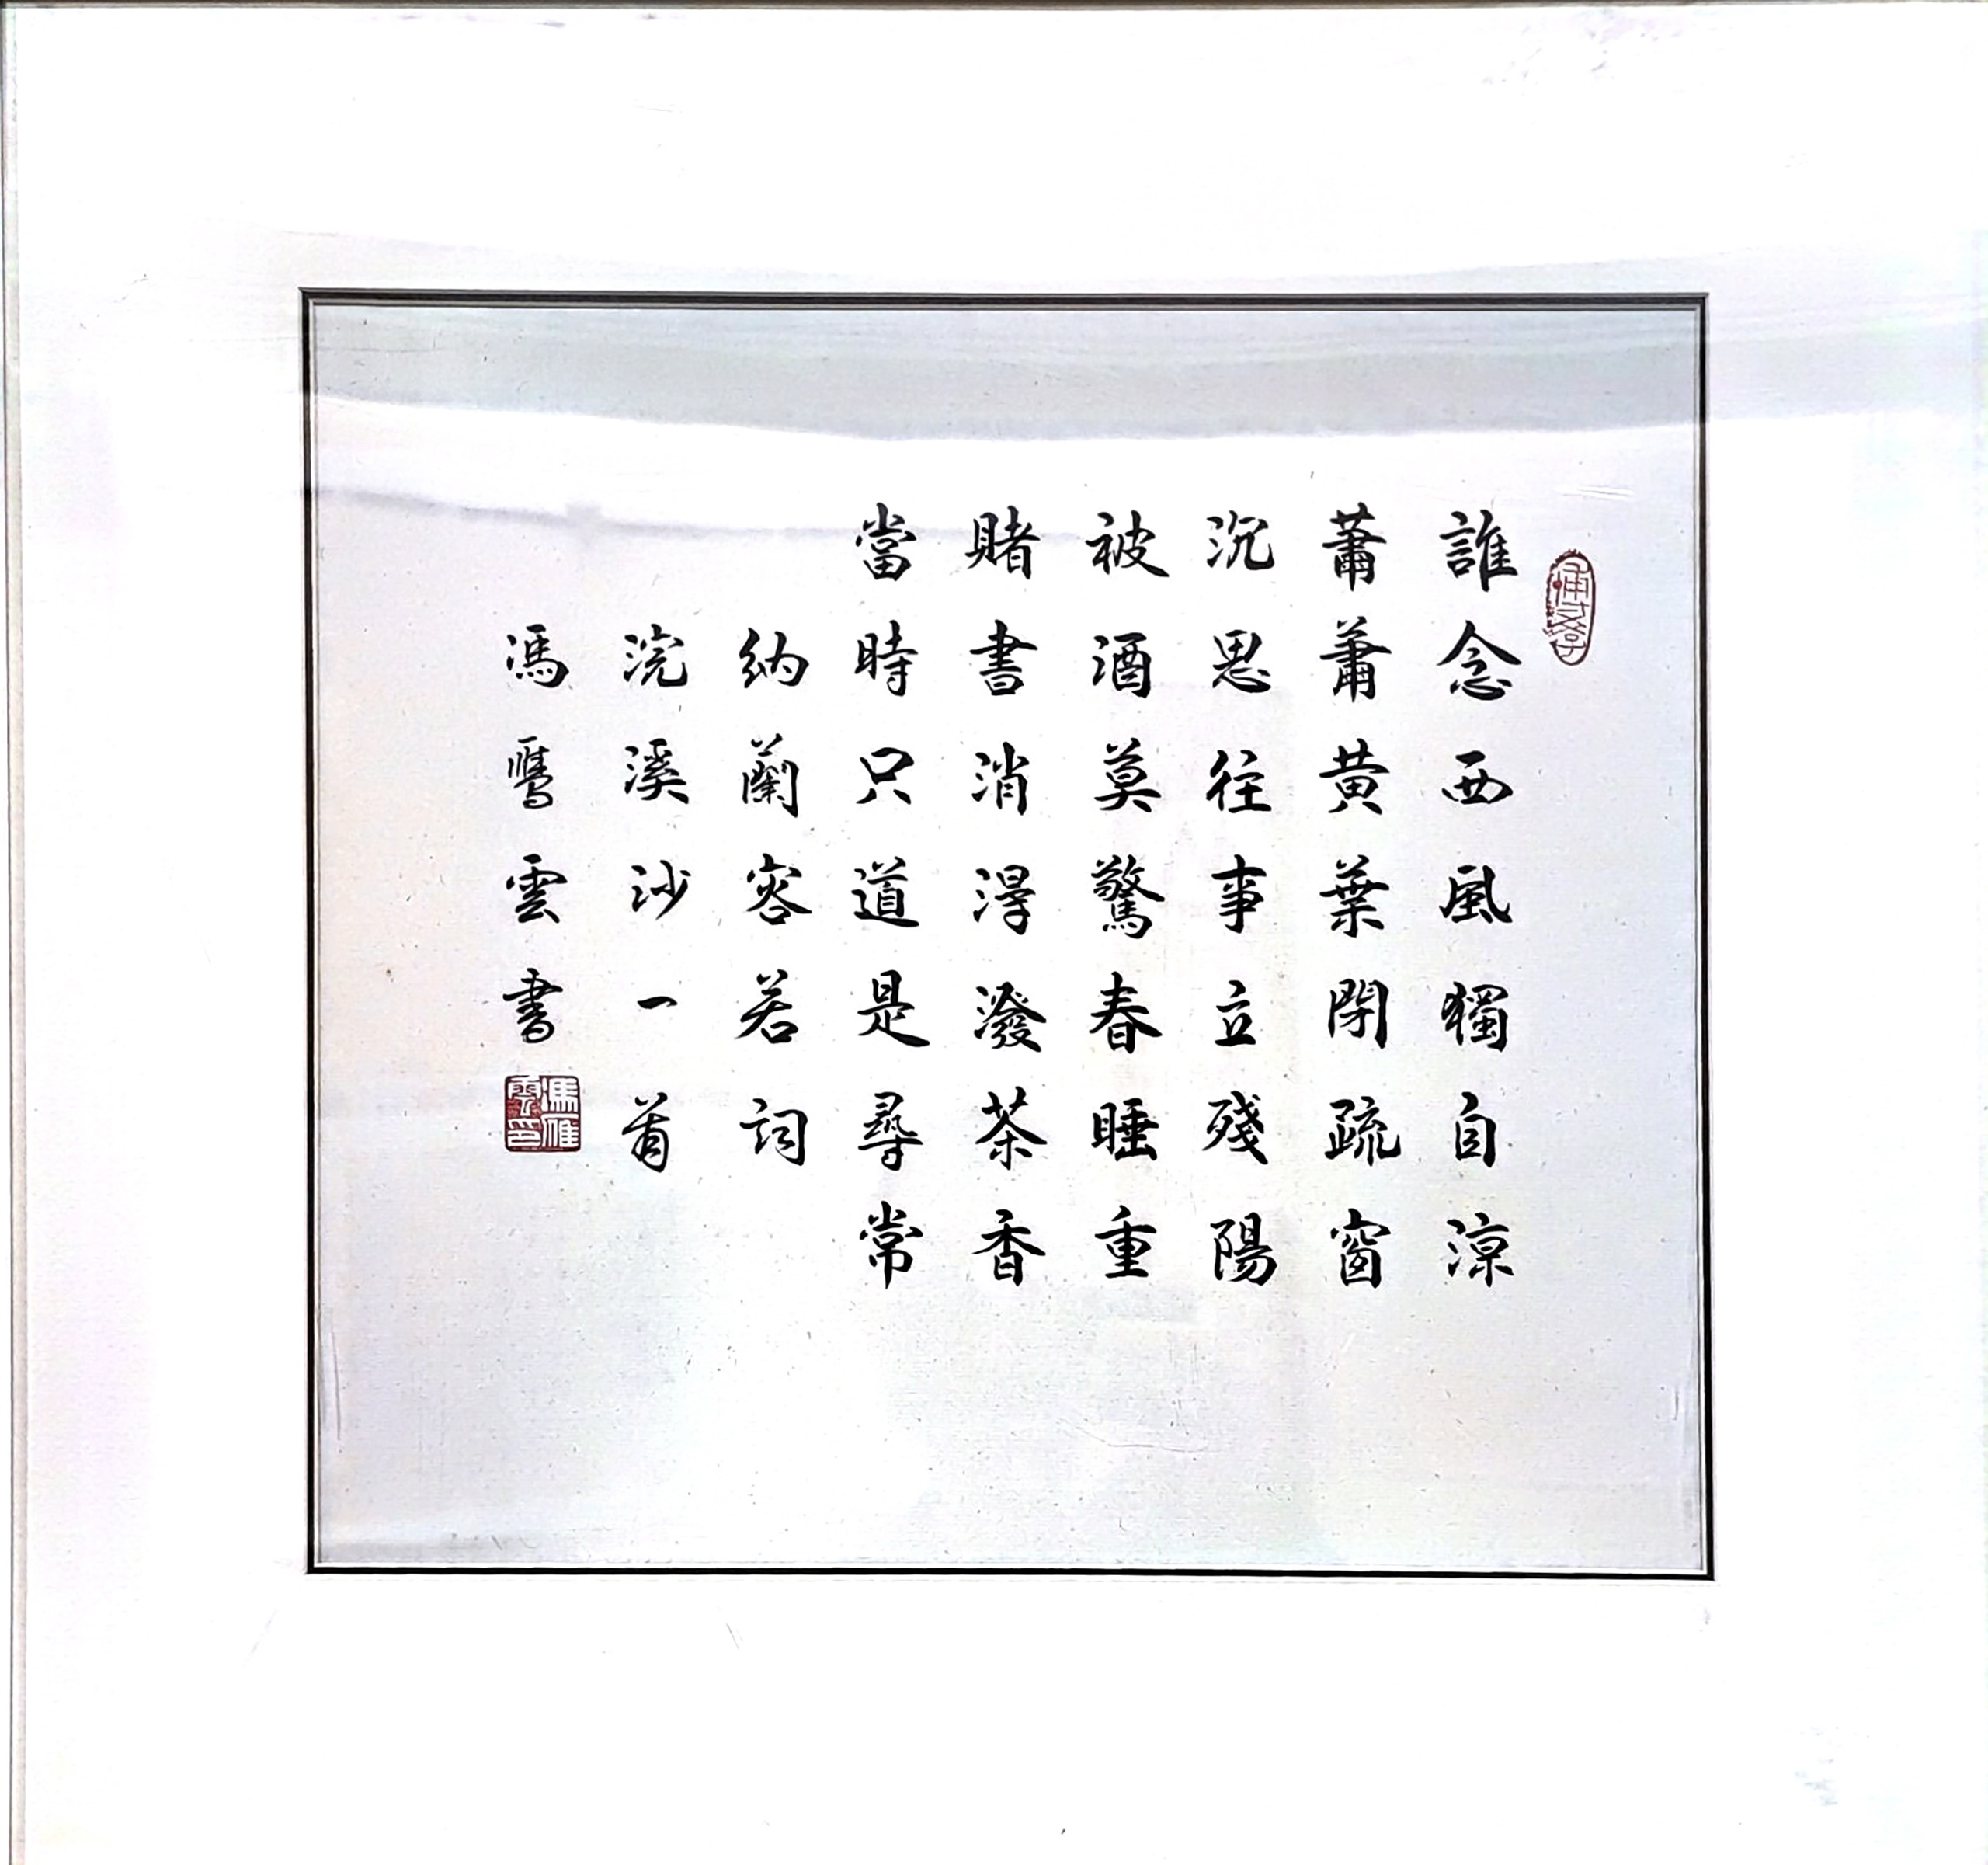 誰念西風獨自涼
蕭蕭黃葉閉疏窗
沉思往事立殘陽
被酒莫驚春睡重
賭書消得潑茶香
當時只道是尋常
納蘭容若詞
浣溪沙一首
馮鴈雲書
馮雁雲印